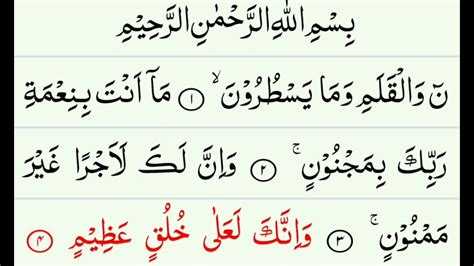 بِسْمِ اللّٰهِ الرَّحْمٰنِ الرَّحِيْمِ
نٓ وَالْقَلَمِ وَمَا يَسْطُرُوْنَ ۙ ﴿۱﴾ مَآ اَنْتَ بِنِعْمَةِ
رَبِّكَ بِمَجْنُوْنٍ ۚ ﴿۲﴾ وَاِنَّ لَكَ لَاَجْرًا غَيْرَ
مَمْنُوْنٍ ۚ ﴿۳﴾ وَاِنَّكَ لَعَلٰى خُلُقٍ عَظِيْمٍ ﴿۴﴾